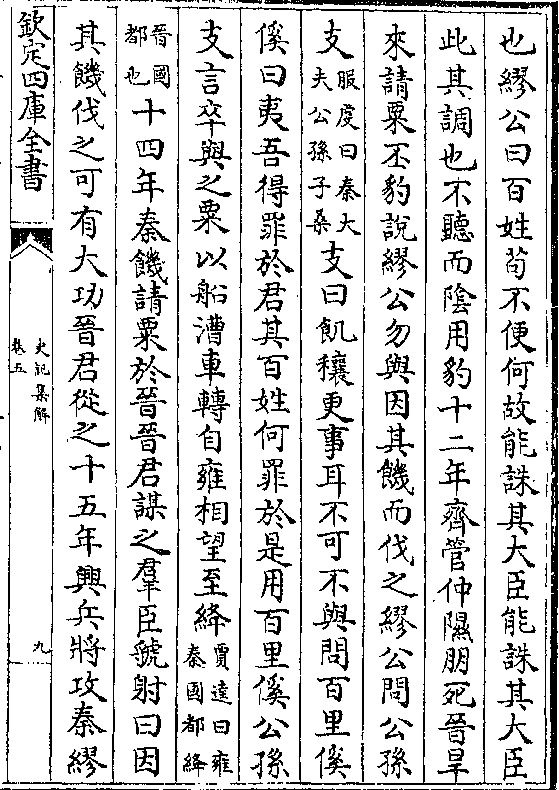 也繆公曰百姓苟不便何故能誅其大臣能誅其大臣
此其調也不聽而陰用豹十二年齊管仲隰朋死晉旱
來請粟丕豹說繆公勿與因其饑而伐之繆公問公孫
支服虔曰秦大夫公孫子桑支曰飢穰更事耳不可不與問百里傒
傒曰夷吾得罪於君其百姓何罪於是用百里傒公孫
支言卒與之粟以船漕車轉自雍相望至絳賈逵曰雍秦國都絳
晉國都也十四年秦饑請粟於晉晉君謀之羣臣虢射曰因
其饑伐之可有大功晉君從之十五年興兵將攻秦繆
欽定四庫全書
史記集解
卷五
九